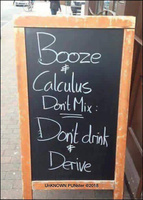 Booze
&
Calculus
Don't Mix:
Don't drink
&
Derive
UNKNOWN PUNster ©2018